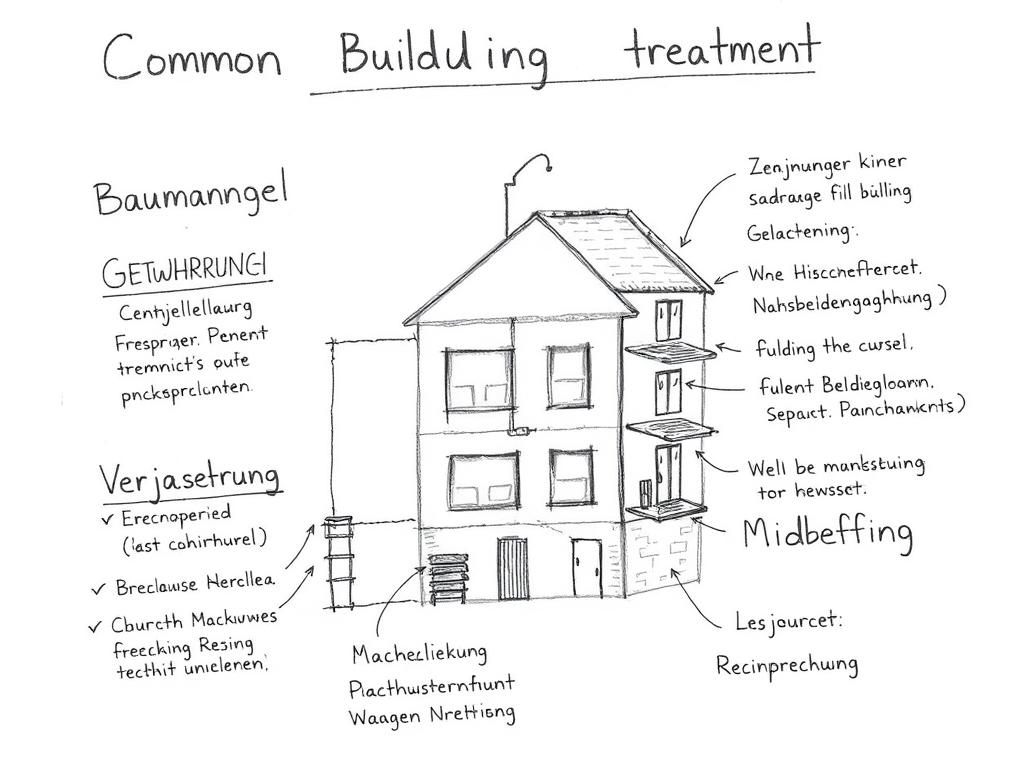 Common Buildding treatment
Baumanngel
GETWHRRUNGI
Centjellellaurg
Fresprıger. Penent
tremnict's oute
pncksprclunten.
Verjasetrung
✓ Erecnoperied
(last cohirhurel)
✓ Breclause Hercllea
✓ Cburcth Mackuwes
freecking Resing
tecthit unielenen,
Zenjnunger kiner
sadrauge fill bülling
Gelactening:.
Wne Hisccheftercet.
Nahsbeldengaghhung)
fulding the cursel.
fulent Beldiegloann.
Sepaict. Painchankcnts)
Well be mankstuing
tor hewsset.
Midbeffing
Les jourcet:
Recinprechung
Macheeliekung
Placthusternfiunt
Waagen Nrettisng